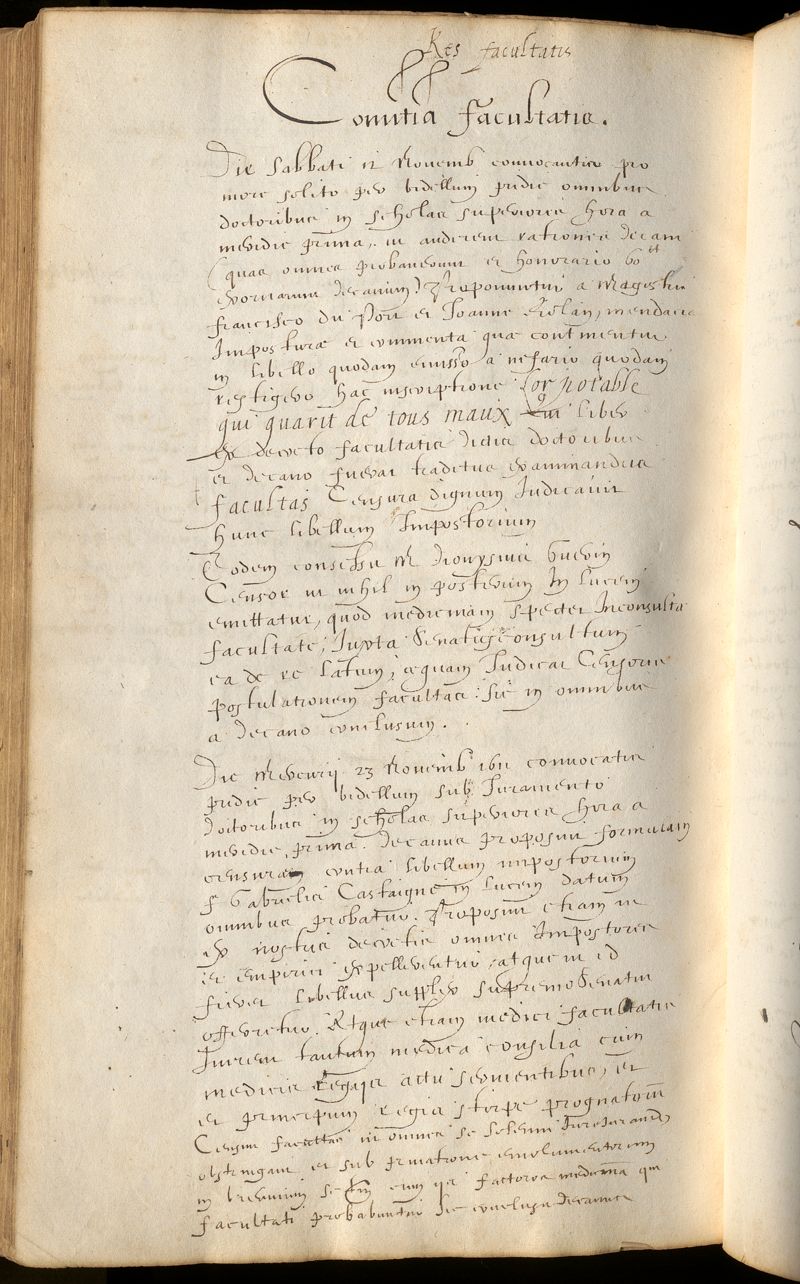 Res facultatis
Comitia Facultatis.
Die Sabbati 12 Novemb convocatis pro
more solito per bidellum pridie omnibus
doctoribus in scholas superiores hora a
meridie prima, ut audirent rationes decani
(quas omnes probaverunt et honorario 60 ll
decanum) Proponuntur a Magistris
Francisco du Port et Joanne Riolan, mendacia
Imposturæ et commenta quæ continentur
in libello quodam emisso a nefario quodam
hac inscriptione L'or potable
qui guarit de tous maux Qui liber
ex decreto facultatis dictis doctoribus
et decano fuerat traditus examinandus
facultas Censura dignum Judicavit
hunc libellum Impostorium
Eodem consessu M Dionysius Guerin
Censor ut nihil in posterum In lucem
emittatur, quod medicinam spectet Inconsulta
facultate, Juxta Senatusconsultum
ea de re latum, æquam Judicat Censoris
postulationem facultas: sic in omnibus
a decano conclusum.
Die Mercurij 23 Novemb 1611 convocatis
pridie per bidellum sub Juramento
doctoribus in scholas superiores hora a
meridie prima. decanus proposuit formulam
censuræ contra libellum impostorium
f Gabrielis Castaigne in lucem datum
omnibus probatur. Proposuit etiam ut
ex nostris decretis omnes Impostores
et empirici expellerentur, atque in id
fieret libellus supplex supremo Senatui
offeretur. Atque etiam medici facultatis
Inirent tantum medica consilia cum
medicis Regijs actu servientibus, et
et principum regia stirpe prognatorum
Censuit facultas ut omnes se solenni Jurejurando
obstringant et sub privatione emolumentorum
medicina qui
facultati probabuntur sic conclusit decanus